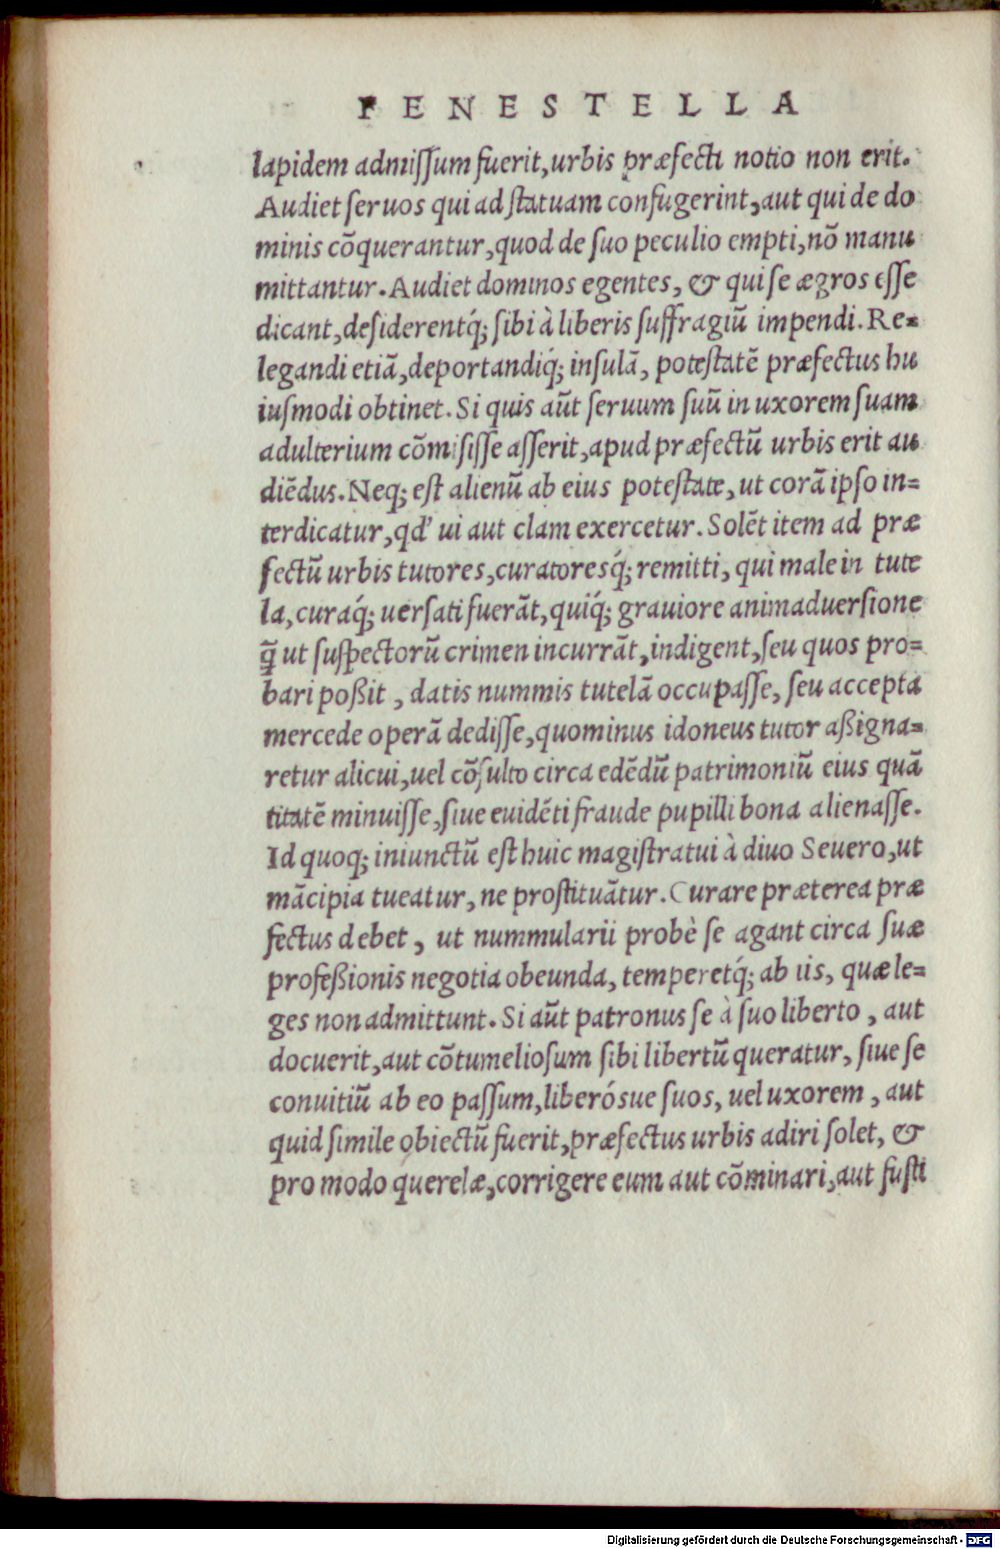 FENESTELLA
lapidem admiſſum fuerit, urbis præfecti notio non erit.
Audiet ſeruos qui ad ſtatuam confugerint, aut qui de do
minis cõquerantur, quod de ſuo peculio empti, nõ manu
mittantur. Audiet dominos egentes, & qui ſe ægros eſſe
dicant, deſiderentq́; ſibi à liberis ſuffragiũ impendi. Re-
legandi etiã, deportandiq́; inſulã, poteſtatẽ præfectus hu
iuſmodi obtinet. Si quis aũt ſeruum ſuũ in uxorem ſuam
adulterium cõmiſiſſe aſſerit, apud præfectũ urbis erit au
diẽdus. Neq; eſt alienũ ab eius poteſtate, ut corã ipſo in=
terdicatur, qd' ui aut clam exercetur. Solẽt item ad præ
fectũ urbis tutores, curatoresq́; remitti, qui male in tute
la, curaq́; uerſati fuerãt, quiq́; grauiore animaduerſione
q̃ ut ſuſpectorũ crimen incurrãt, indigent, ſeu quos pro=
bari poßit, datis nummis tutelã occupaſſe, ſeu accepta
mercede operã dediſſe, quominus idoneus tutor aßigna=
retur alicui, uel cõſulto circa edẽdũ patrimoniũ eius quã
titatẽ minuiſſe, ſiue euidẽti fraude pupilli bona alienaſſe.
Id quoq; iniunctũ eſt huic magiſtratui à diuo Seuero, ut
mãcipia tueatur, ne proſtituãtur. Curare præterea præ
fectus debet, ut nummularii probè ſe agant circa ſuæ
profeßionis negotia obeunda, temperetq́; ab iis, quæ le=
ges non admittunt. Si aũt patronus ſe à ſuo liberto, aut
docuerit, aut cõtumelioſum ſibi libertũ queratur, ſiue ſe
conuitiũ ab eo paſſum, liberósue ſuos, uel uxorem, aut
quid ſimile obiectũ fuerit, præfectus urbis adiri ſolet, &
pro modo querelæ, corrigere eum aut cõminari, aut fuſti
Digitalisierung gefördert durch die Deutsche Forschungsgemeinschaft - DFG